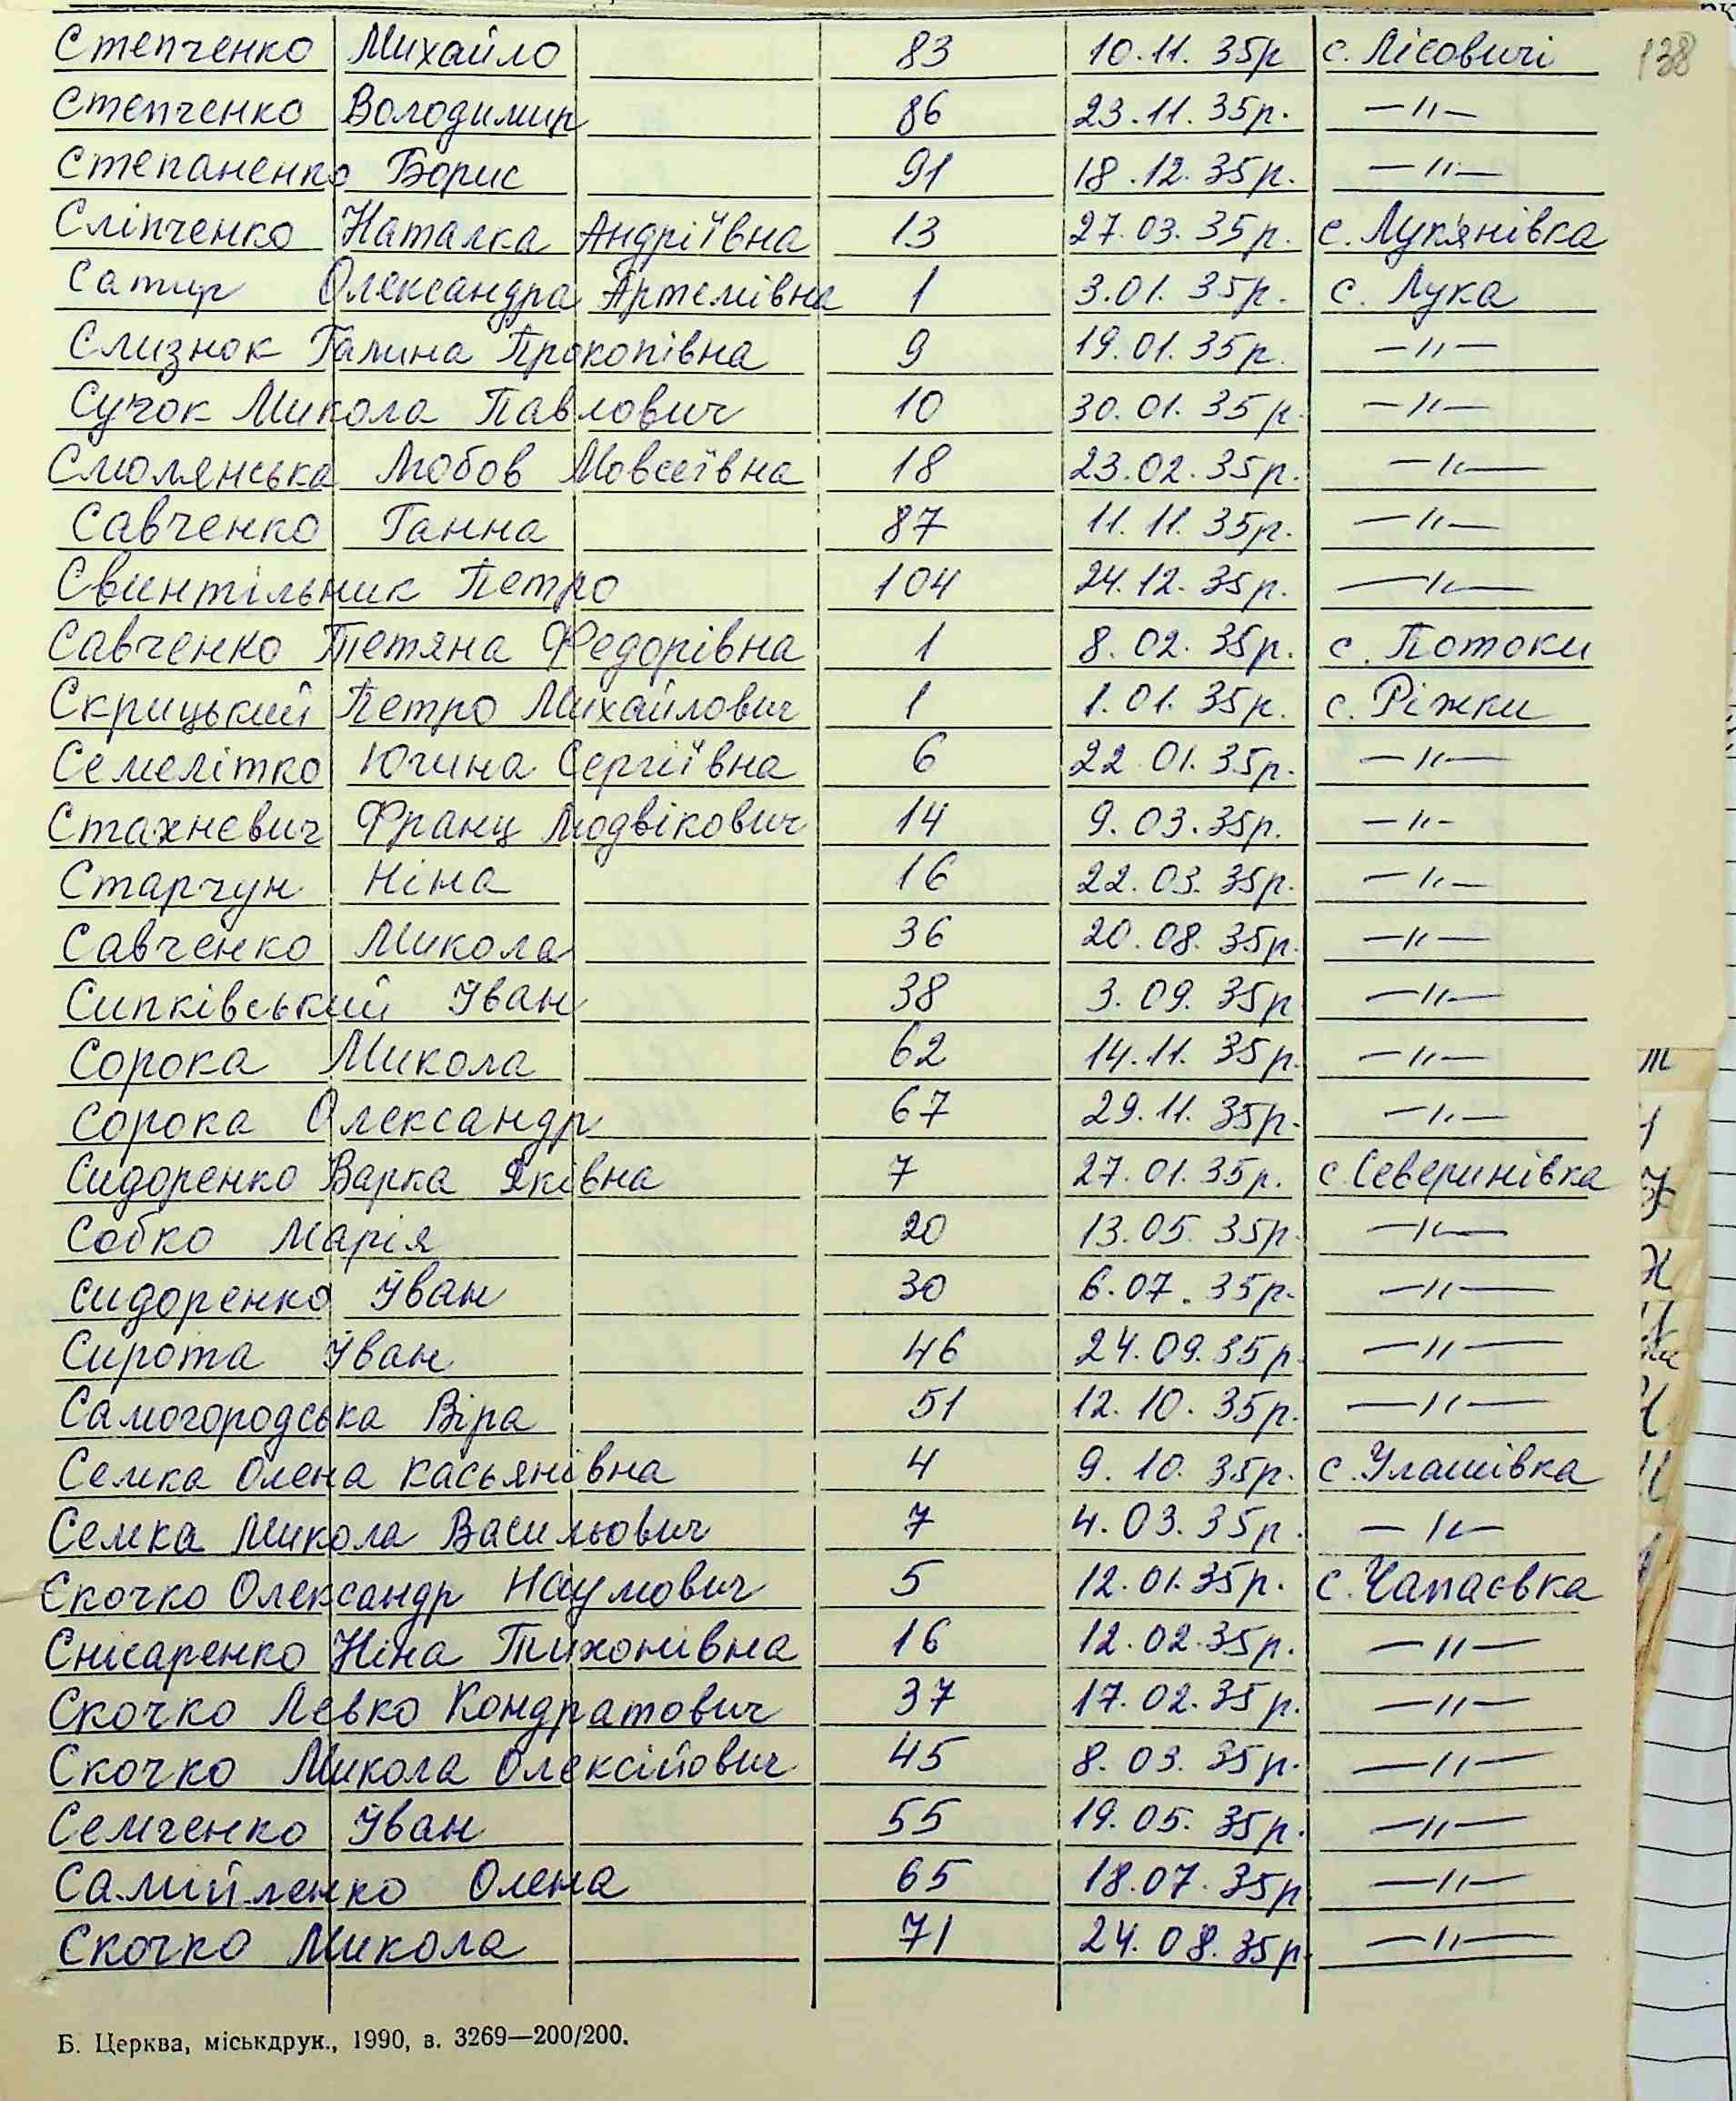 Степченко Михайло 83 10.11.35р с. Лісовичі 138
Степченко Володимир 86 23.11.35р. —"—
Степаненко Борис 91 18.12.35р. —"—
Сліпченко Наталка Андріївна 13 27.03.35р. с. Лук'янівка
Сатир Олександра Артемівна 1 3.01.35р. с. Лука
Слизнок Галина Прокопівна 9 19.01.35р. —"—
Сучок Микола Павлович 10 30.01.35р. —"—
Смолянська Любов Мовсеївна 18 23.02.35р. —"—
Савченко Ганна 87 11.11.35р. —"—
Свинтільник Петро 104 24.12.35р. —"—
Савченко Тетяна Федорівна 1 8.02.35р. с. Потоки
Скрицький Петро Михайлович 1 1.01.35р. с. Ріжки
Семелітко Югина Сергіївна 6 22.01.35р. —"—
Стахневич Франц Людвікович 14 9.03.35р. —"—
Старчун Ніна 16 22.03.35р. —"—
Савченко Микола 36 20.08.35р. —"—
Сипківський Іван 38 3.09.35р —"—
Сорока Микола 62 14.11.35р. —"—
Сорока Олександр 67 29.11.35р. —"—
Сидоренко Варка Яківна 7 27.01.35р. с. Северинівка
Собко Марія 20 13.05.35р. —"—
Сидоренко Іван 30 6.07.35р. —"—
Сирота Іван 46 24.09.35р. —"—
Самогородська Віра 51 12.10.35р. —"—
Семка Олена Касьянівна 4 9.10.35р. с. Улашівка
Семка Микола Васильович 7 4.03.35р. —"—
Скочко Олександр Наумович 5 12.01.35р. с. Чапаєвка
Снісаренко Ніна Тихонівна 16 12.02.35р. —"—
Скочко Левко Кондратович 37 17.02.35р. —"—
Скочко Микола Олексійович 45 8.03.35р. —"—
Семченко Іван 55 19.05.35р. —"—
Самійленко Олена 65 18.07.35р —"—
Скочко Микола 71 24.08.35р. —"—
Б. Церква, міськдрук., 1990, з. 3269—200/200.